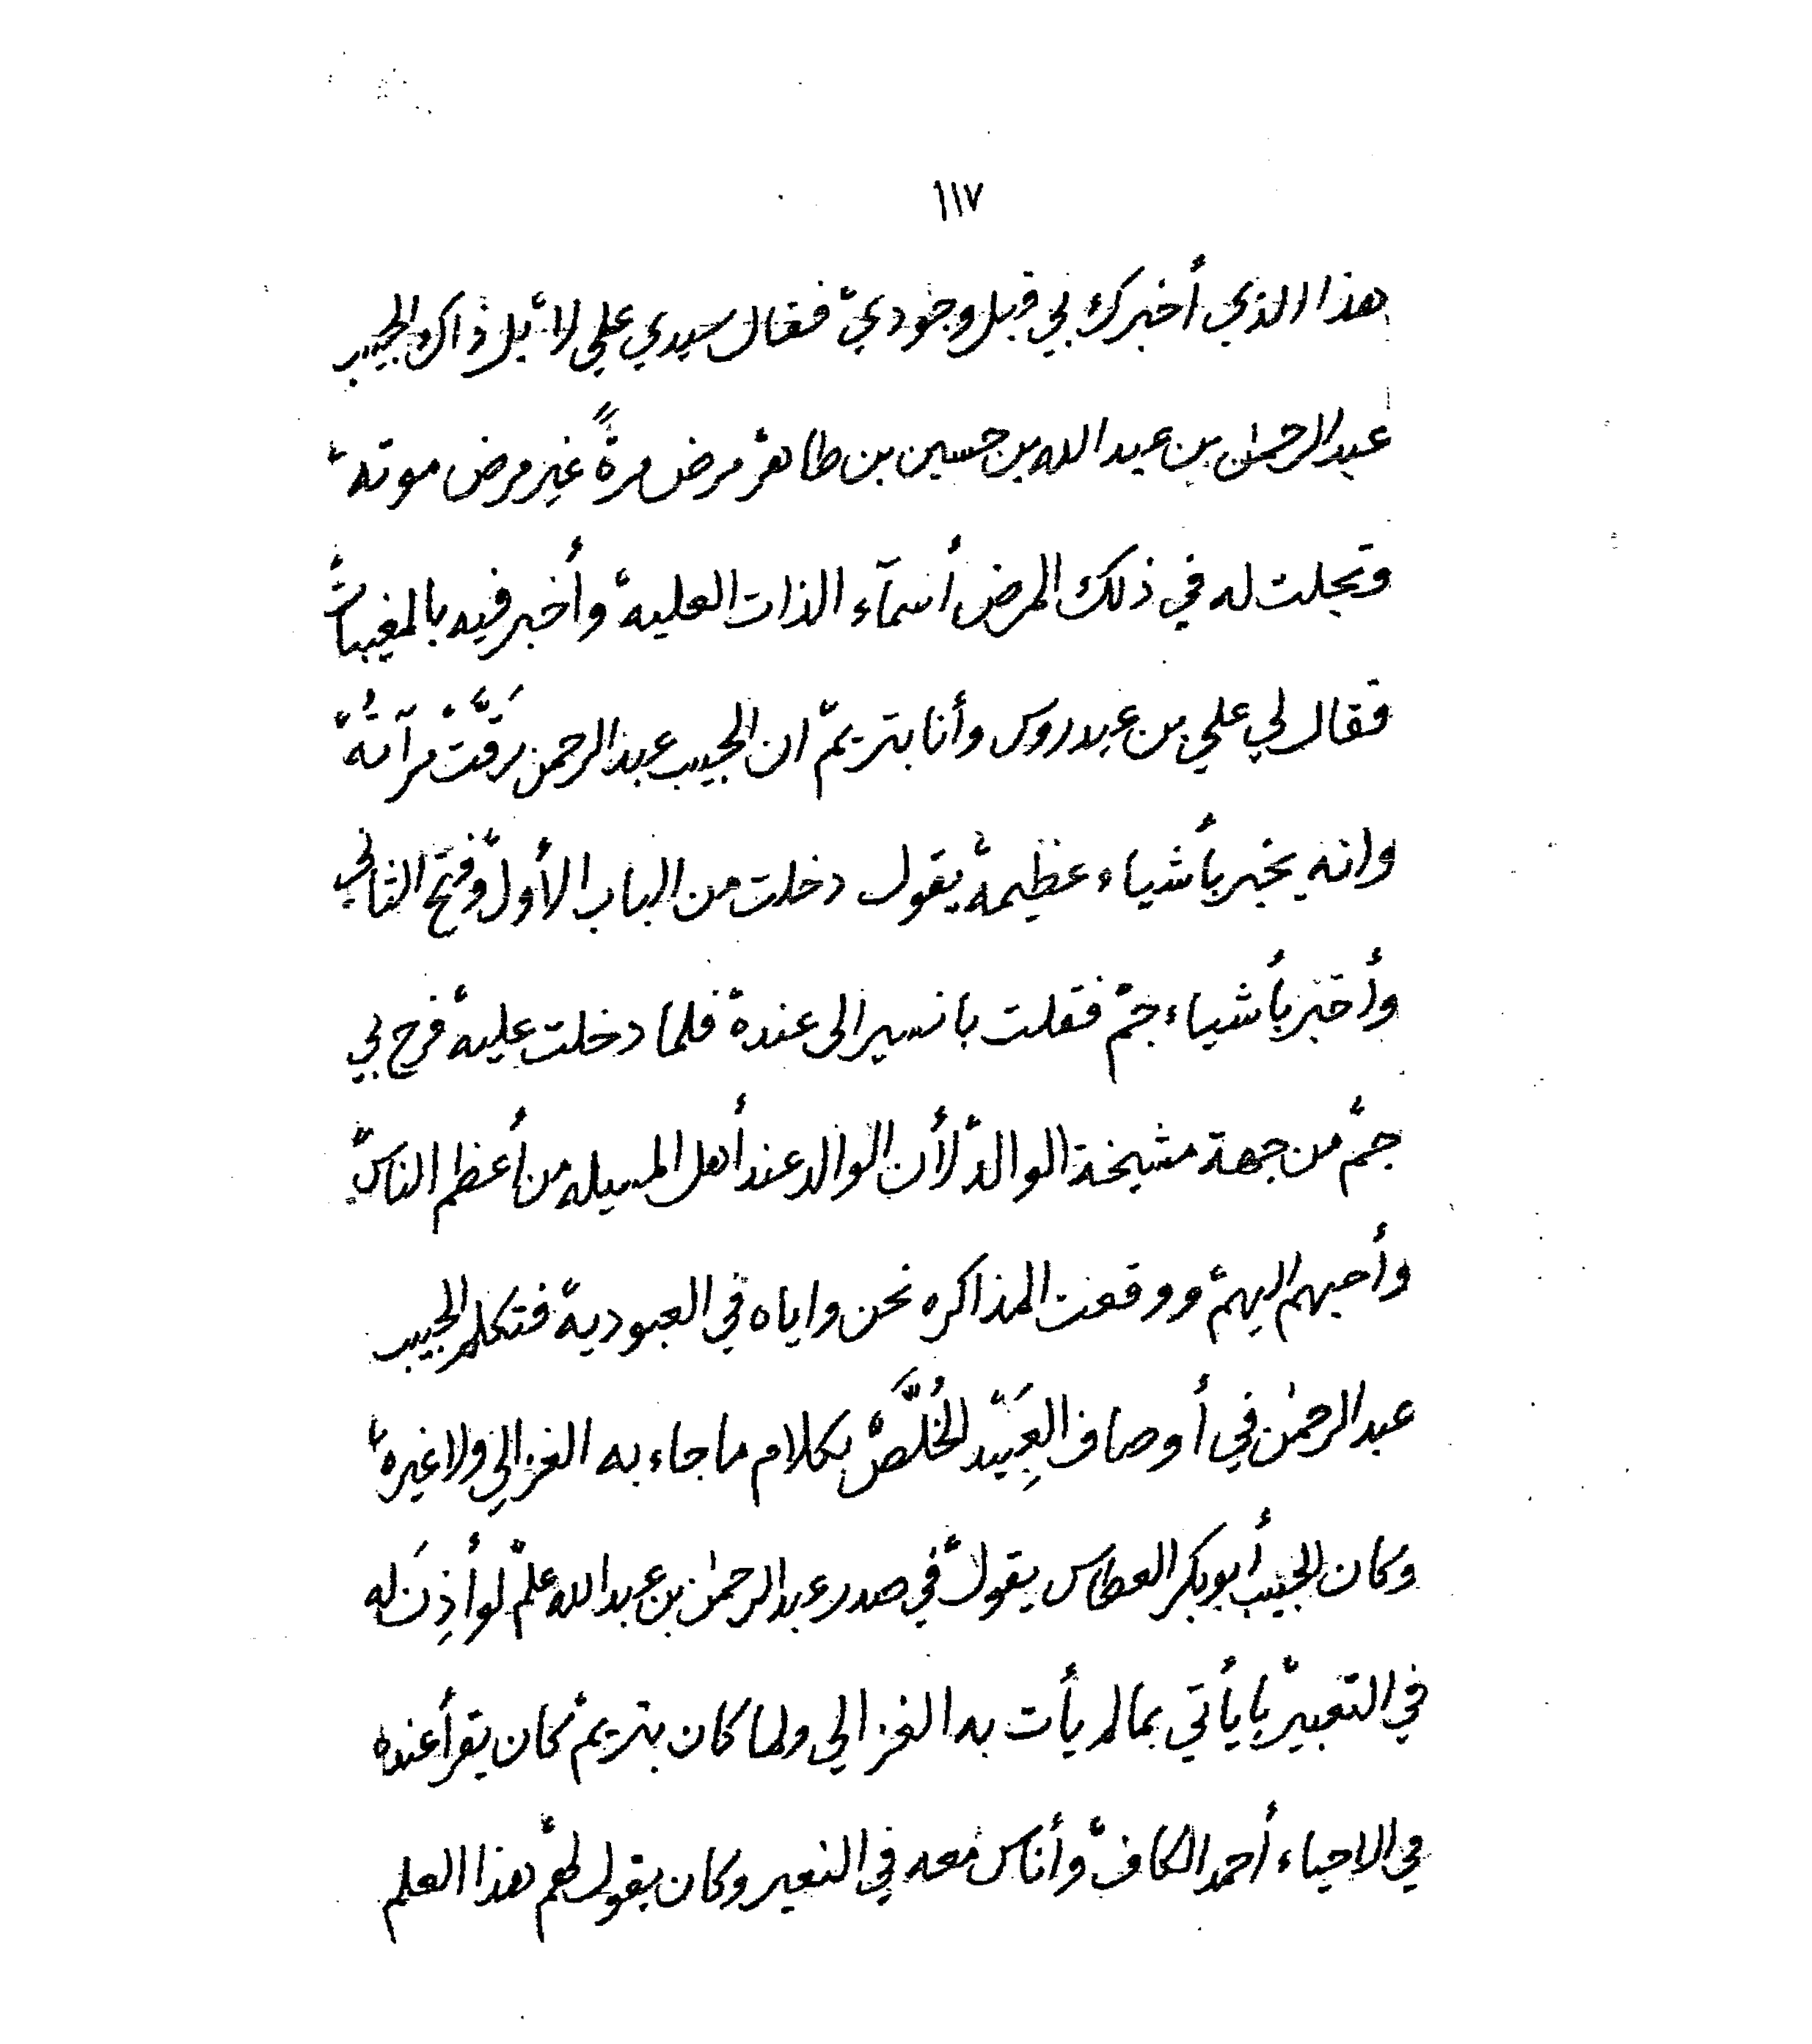 ١١٧
هذا الذي أخبرك بي قبل وجودي، فقال سيدي علي لا، بل ذاك الحبيب
عبدالرحمٰن بن عبدالله بن حسين بن طاهر، مرض مرةً غير مرض موته،
وتجلت له في ذلك المرض أسمآء الذات العليه، وأخبر فيه بالمغيبات،
فقال لي علي بن عيدروس وأنا بتريم، ان الحبيب عبدالرحمن رَقَّتْ مرآتُهُ،
وانه يخبر بأشياء عظيمه، يقول دخلت من الباب الأول، وفتح الثاني
وأخبر بأشياء جم، فقلت بانسير الى عنده، فلما دخلت عليه، فرح بي
جم، من جهة مشيخة الوالد، لأن الوالد عند أهل المسيله من أعظم الناس،
وأحبهم اليهم، ووقعت المذاكره نحن واياه في العبودية، فتكلم الحبيب
عبدالرحمٰن في أوصاف العَبِيْد الخُلَّصْ، بكلام ما جاء به الغزالي ولا غيره،
وكان الحبيب أبوبكر العطاس يقول، في صدر عبدالرحمٰن بن عبدالله علم، لو أُذِنَ له
في التعبير، بايأتي بمالم يأت به الغزالي ولما كان بتريم، كان يقرأ عنده
في الاحياء أحمد الكاف، وأناس معه في النعير وكان يقول لهم، هذا العلم